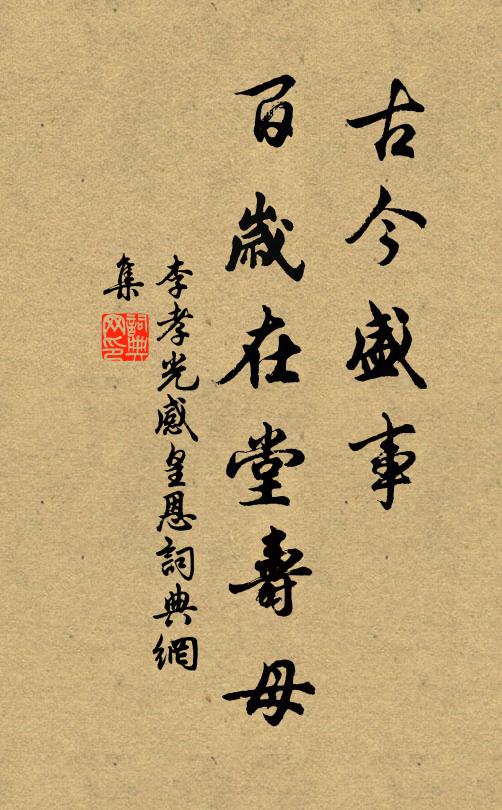 古今盛事
百歳在堂壽母
李孝光感皇恩詞典網
集
詞典網印